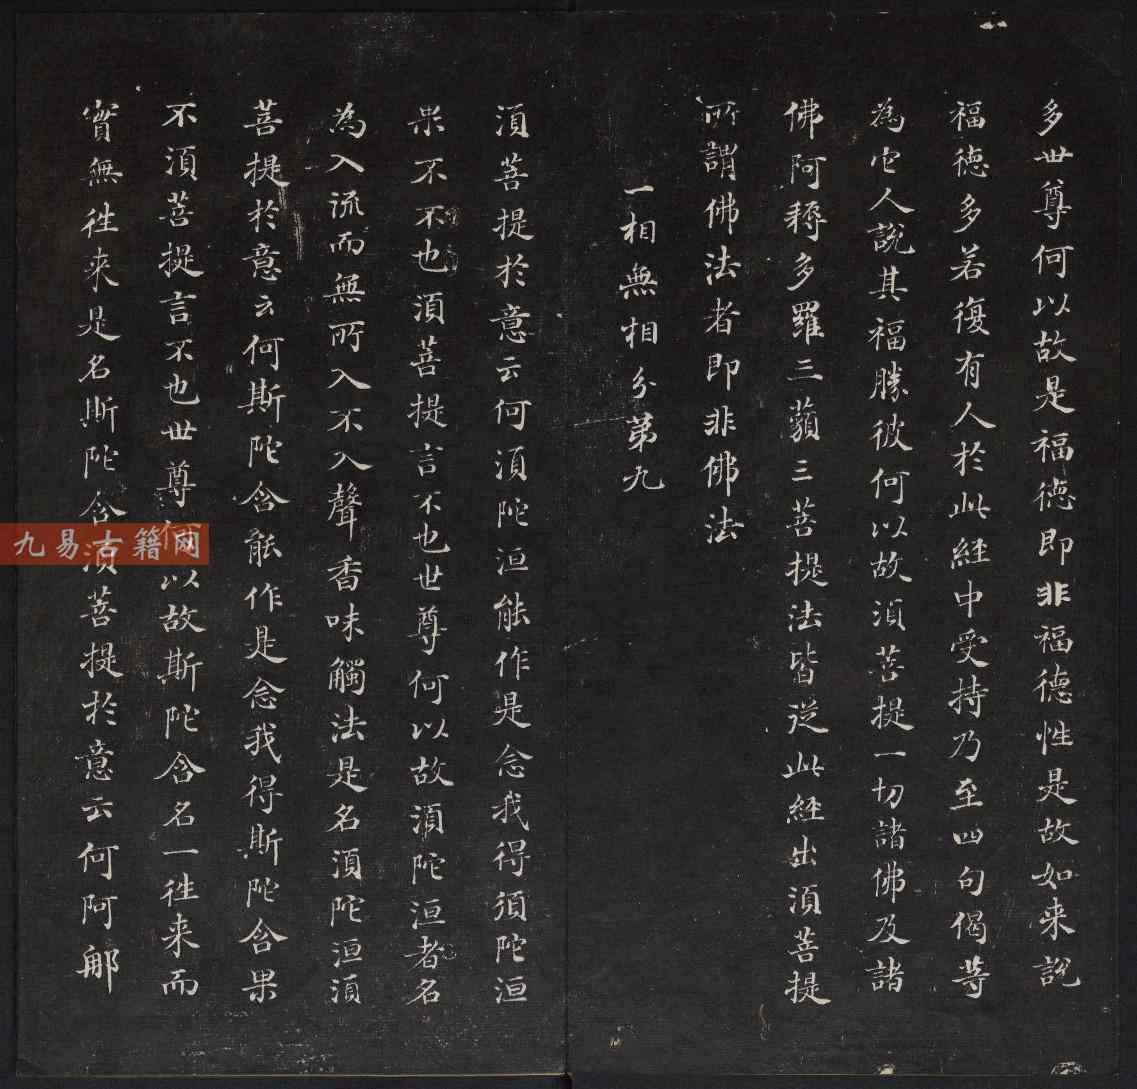 多世尊何以故是福德即非福德性是故如来說
福德多若復有人於此経中受持乃至四句偈等
為它人說其福勝彼何以故須菩提一切諸佛及諸
佛阿耨多羅三藐三菩提法皆從此経出須菩提
所謂佛法者即非佛法
一相無相分第九
須菩提於意云何須陀洹能作是念我得須陀洹
果不不也須菩提言不也世尊何以故須陀洹者名
為入流而無所入不入聲香味觸法是名須陀洹須
菩提於意云何斯陀含能作是念我得斯陀含果
不須菩提言不也世尊何以故斯陀含名一往来而
實無往来是名斯陀含須菩提於意云何阿那
九易古籍网